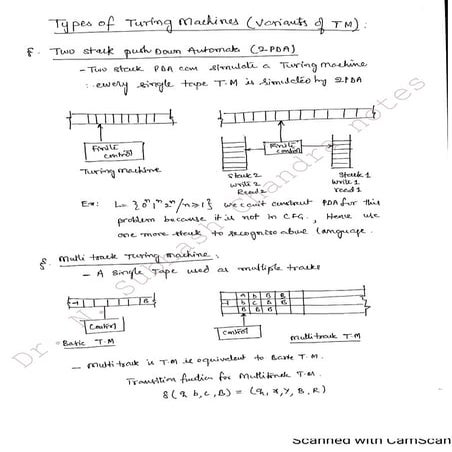 Types of Turing Machines (Variants of TM):
§. Two stack push Down Automata (2PDA)
- Two stack PDA can simulate a Turing Machine
∴ every single tape T.M is simulated by 2PDA
Finite control
Turing Machine
Finite control
Stack 2 Stack 1
Write 2 Write 1
Read 2 Read 1
Ex: L = {0ⁿ1ⁿ2ⁿ/n≥1} we can't construct PDA for this
problem because it is not in CFG, Hence use
one more stack to recognize above language.
§. Multi track Turing Machine:
- A Single Tape used as multiple tracks
B
A b B B
b C B B
B B B
Control
Control
Basic T.M
Multi track T.M
- Multi track is T.M is equivalent to Basic T.M.
Transition function for Multitrack T.M.
δ(q, b, c, B) = (q, x, Y, B, R)
Dr. N. Subhash Chandra notes
Scanned with CamScan